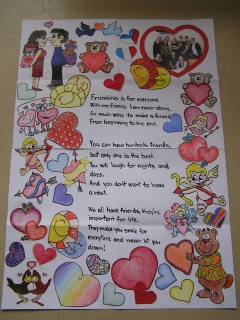 Friendship is for everyone.
With my friends I am never alone.
So much ways to make a friend
From beginning to the end.
You can have hundreds friends,
but only one is the best.
You will laugh for nights and
days.
And you don't want to have
a rest.
We all have friends, they're
important for life.
They make you smile for
everytime and never let you
down!